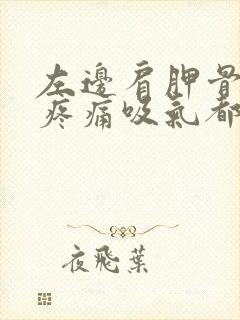 左邊肩胛骨
疼痛吸氣都
夜飛葉